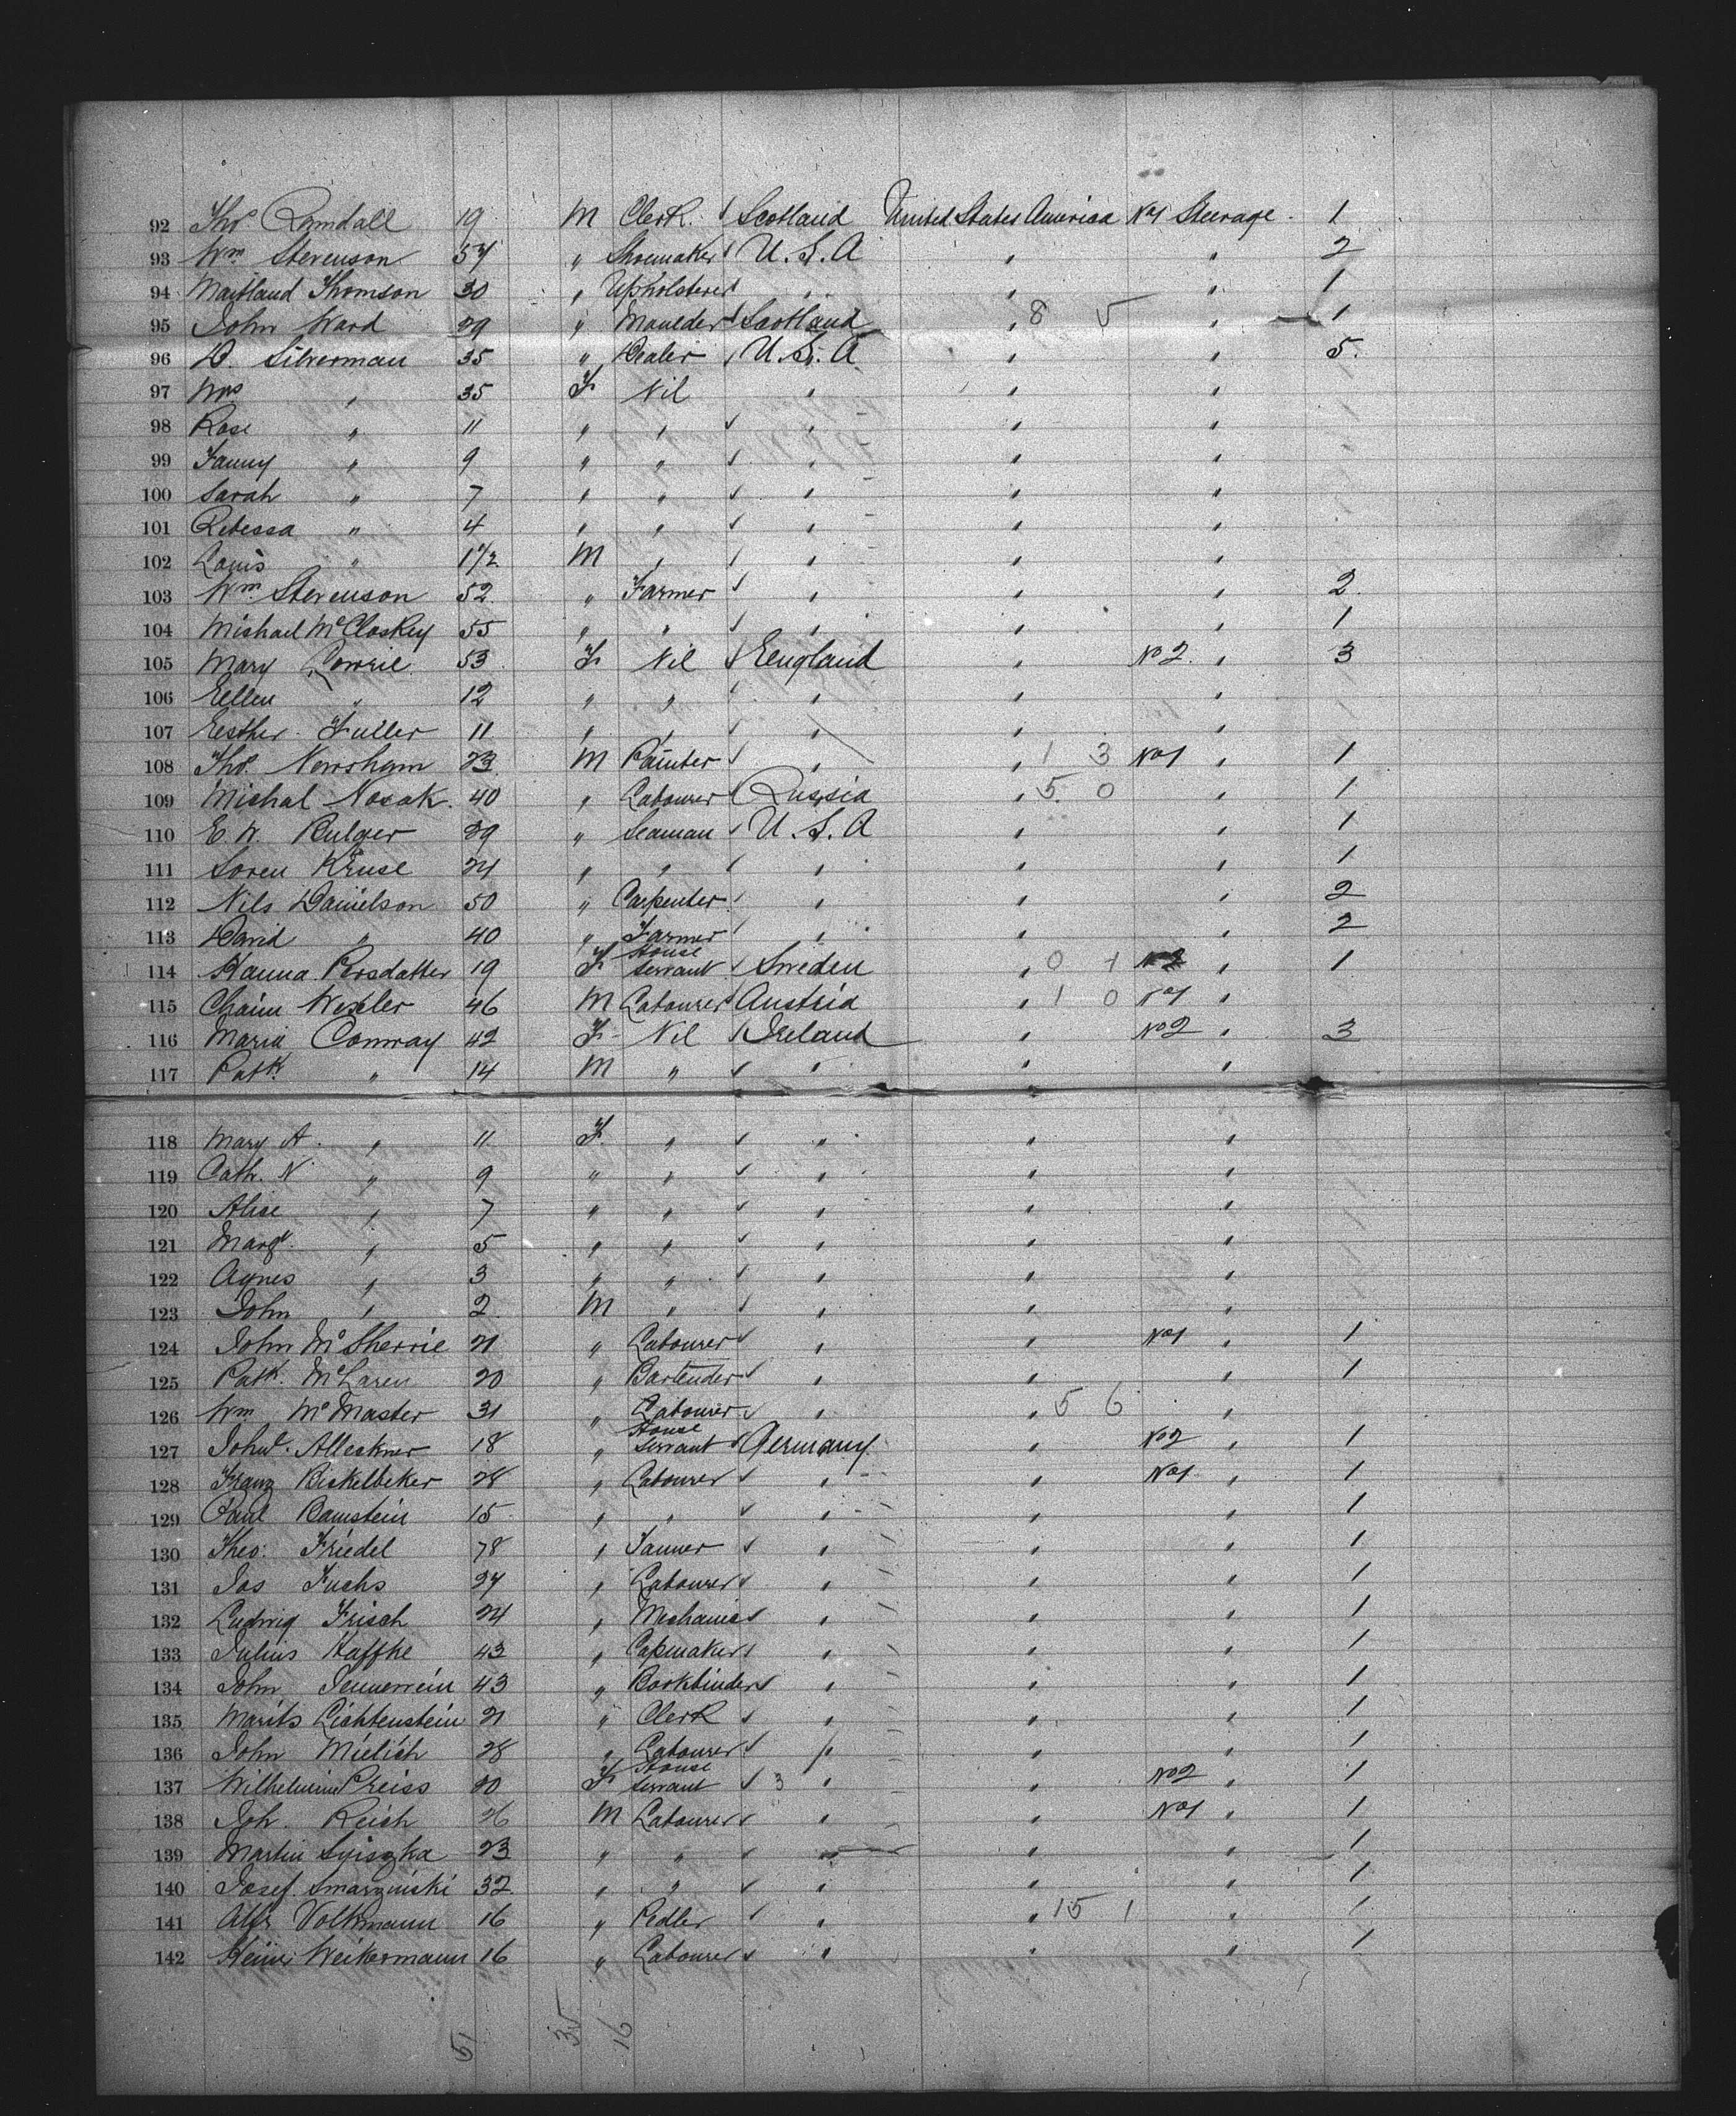 92 Thos. Ramdall 19 M Clerk. ✓ Scotland United States America No 1 Steerage 1
93 Wm. Stevenson 54 " Shoemaker ✓ U.S.A " " 2
94 Maitland Thomson 30 " Upholsterer " " " 1
95 John Ward 29 " Moulder ✓ Scotland " 8 5 " 1
96 D. Silverman 35 " Dealer ✓ U.S.A " " 5.
97 Mrs " 35 F Nil " " "
98 Rose " 11 " " ✓ " " "
99 Fanny " 9 " " ✓ " " "
100 Sarah " 7 " " ✓ " " "
101 Rebecca " 4 " " ✓ " " "
102 Louis " 1 1/2 M " ✓ " " "
103 Wm. Stevenson 52 " Farmer ✓ " " " 2
104 Michael McCloskey 55 " " ✓ " " " 1
105 Mary Lowrie 53 F Nil ✓ England " No 2 " 3
106 Ellen " 12 " " ✓ " " "
107 Esther Fuller 11 " " ✓ " " "
108 Thos. Newsham 23 M Painter ✓ " " 1 3 No 1 " 1
109 Michal Novak. 40 " Labourer ✓ Russia " 5. 0 " 1
110 E. W. Bulger 29 " Seaman ✓ U.S.A " " 1
111 Soren Kruse 24 " " ✓ " " " 1
112 Nils Danielson 50 " Carpenter ✓ " " " 2
113 David " 40 " Farmer ✓ " " " 2
114 Hanna Persdatter 19 F House Servant ✓ Sweden " 0 1 No 2 " 1
115 Chaim Wexler 46 M Labourer ✓ Austria " 1 0 No 1 "
116 Maria Conway 42 F Nil ✓ Ireland " No 2 " 3
117 Patk. " 14 M " ✓ " " "
118 Mary A. " 11 F. " ✓ " " "
119 Cath. N. " 9 " " ✓ " " "
120 Alice " 7 " " ✓ " " "
121 Margt. " 5 " " ✓ " " "
122 Agnes " 3 " " ✓ " " "
123 John " 2 M " ✓ " " "
124 John McSherrie 21 " Labourer ✓ " " No 1 " 1
125 Patk. McLaren 20 " Bartender ✓ " " " 1
126 Wm McMaster 31 " Labourer ✓ " " 5 6 "
127 18 " House Servant ✓ Germany " No 2 " 1
128 Franz Bickelbeker 28 " Labourer ✓ " " No 1 " 1
129 Paul Bamstein 15 " " ✓ " " " 1
130 Theo. Friedel 78 " Tanner ✓ " " " 1
131 Jos Fuchs 27 " Labourer ✓ " " " 1
132 Ludwig Frisch 24 " Mechanic ✓ " " " 1
133 Julius Kaffke 43 " Capmaker ✓ " " " 1
134 John Jennerrein 43 " Bookbinder ✓ " " " 1
135 Morits Lichtenstein 21 " Clerk ✓ " " " 1
136 John Mielich 28 " Labourer ✓ " " " 1
137 Wilhelmine Preiss 20 F House Servant ✓ 3 " " No 2 " 1
138 Joh. Reich 26 M Labourer ✓ " " No 1 " 1
139 Martin 23 " " ✓ " " " 1
140 Josef Smarzinski 32 " " ✓ " " " 1
141 Alfr Volkmann 16 " Pedler ✓ " " 15 1 " 1
142 Heinr Weikermann 16 " Labourer ✓ " " " 1
51 35 16